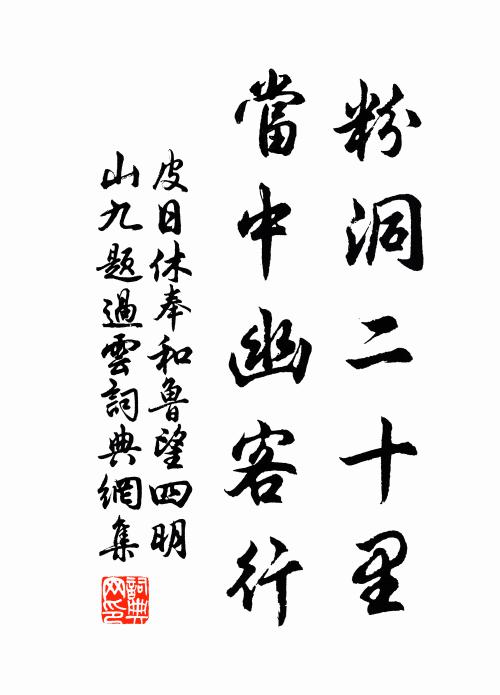 粉洞二十里
當中幽客行
皮日休奉和魯望四明
山九題過雲詞典網集
詞典網印